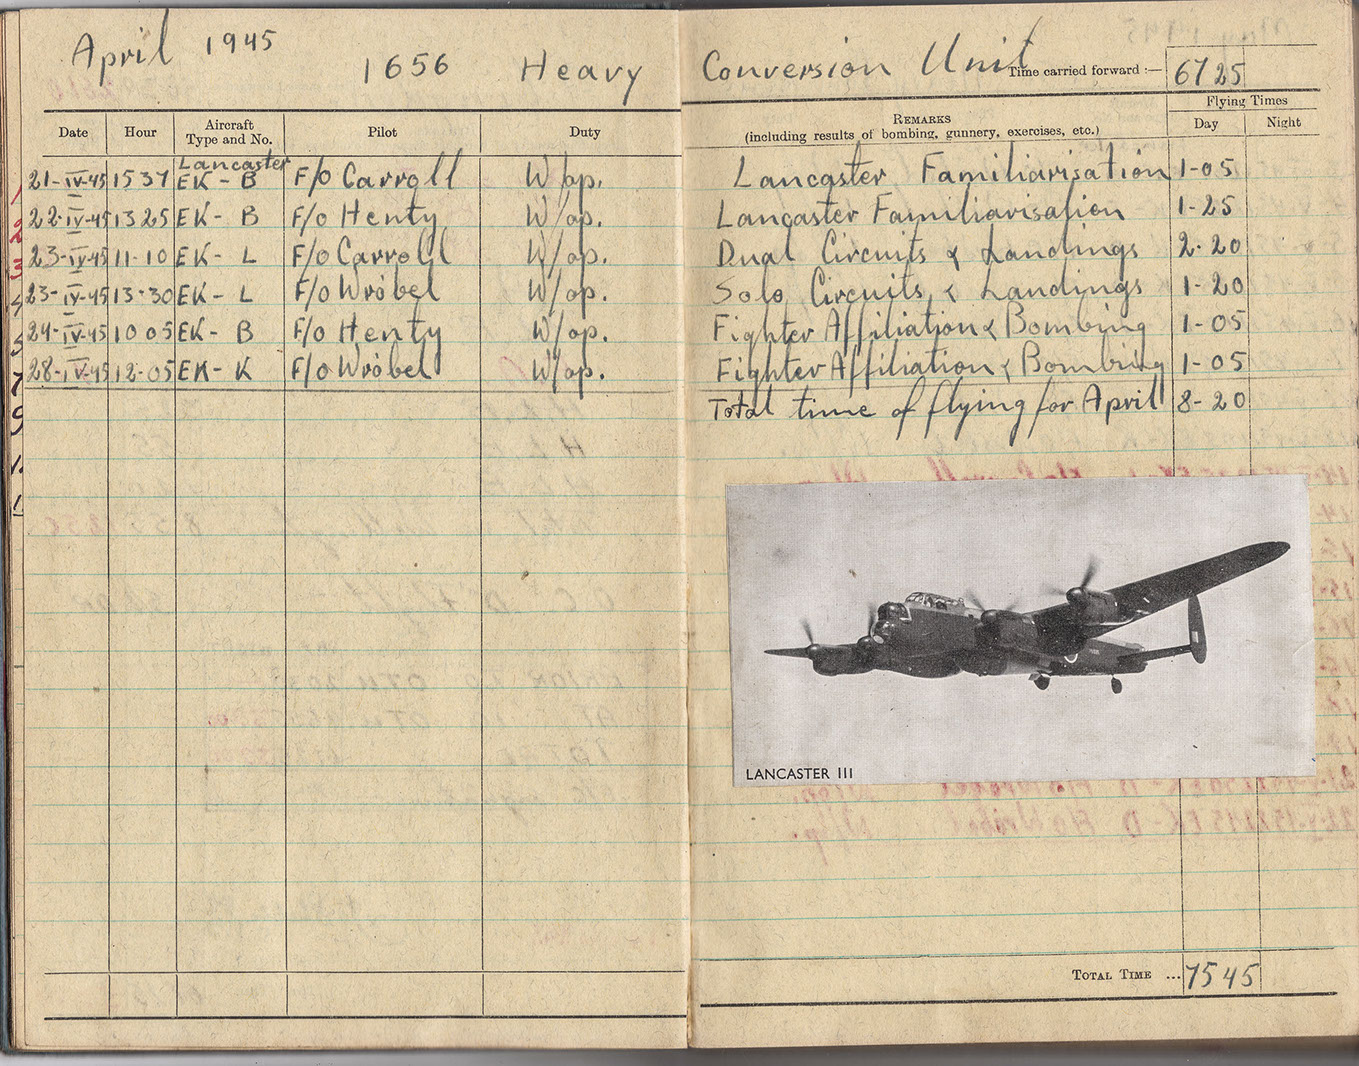 April 1945
1656 Heavy Conversion Unit
Time carried forward :— 67 25
Date Hour Aircraft Type and No. Pilot Duty REMARKS (including results of bombing, gunnery, exercises, etc.) Flying Times Day Night
Lancaster
21-IV-45 15 37 EK - B F/o Carroll W/op. Lancaster Familiarisation 1-05
22-IV-45 13 25 EK - B F/o Henty W/op. Lancaster Familiarisation 1-25
23-IV-45 11-10 EK - L F/o Carroll W/op. Dual Circuits & Landings 2-20
23-IV-45 13-30 EK - L F/o Wróbel W/op. Solo Circuits & Landings 1-20
24-IV-45 10 05 EK - B F/o Henty W/op. Fighter Affiliation & Bombing 1-05
28-IV-45 12-05 EK - K F/o Wróbel W/op. Fighter Affiliation & Bombing 1-05
Total time of flying for April 8-20
LANCASTER III
TOTAL TIME ... 75 45